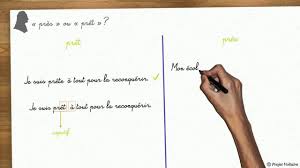 « près » ou « prêt » ?
prêt
près
Je suis prête à tout pour la reconquérir.
Mon écol
Je suis prêt à tout pour la reconquérir.
© Projet Voltaire